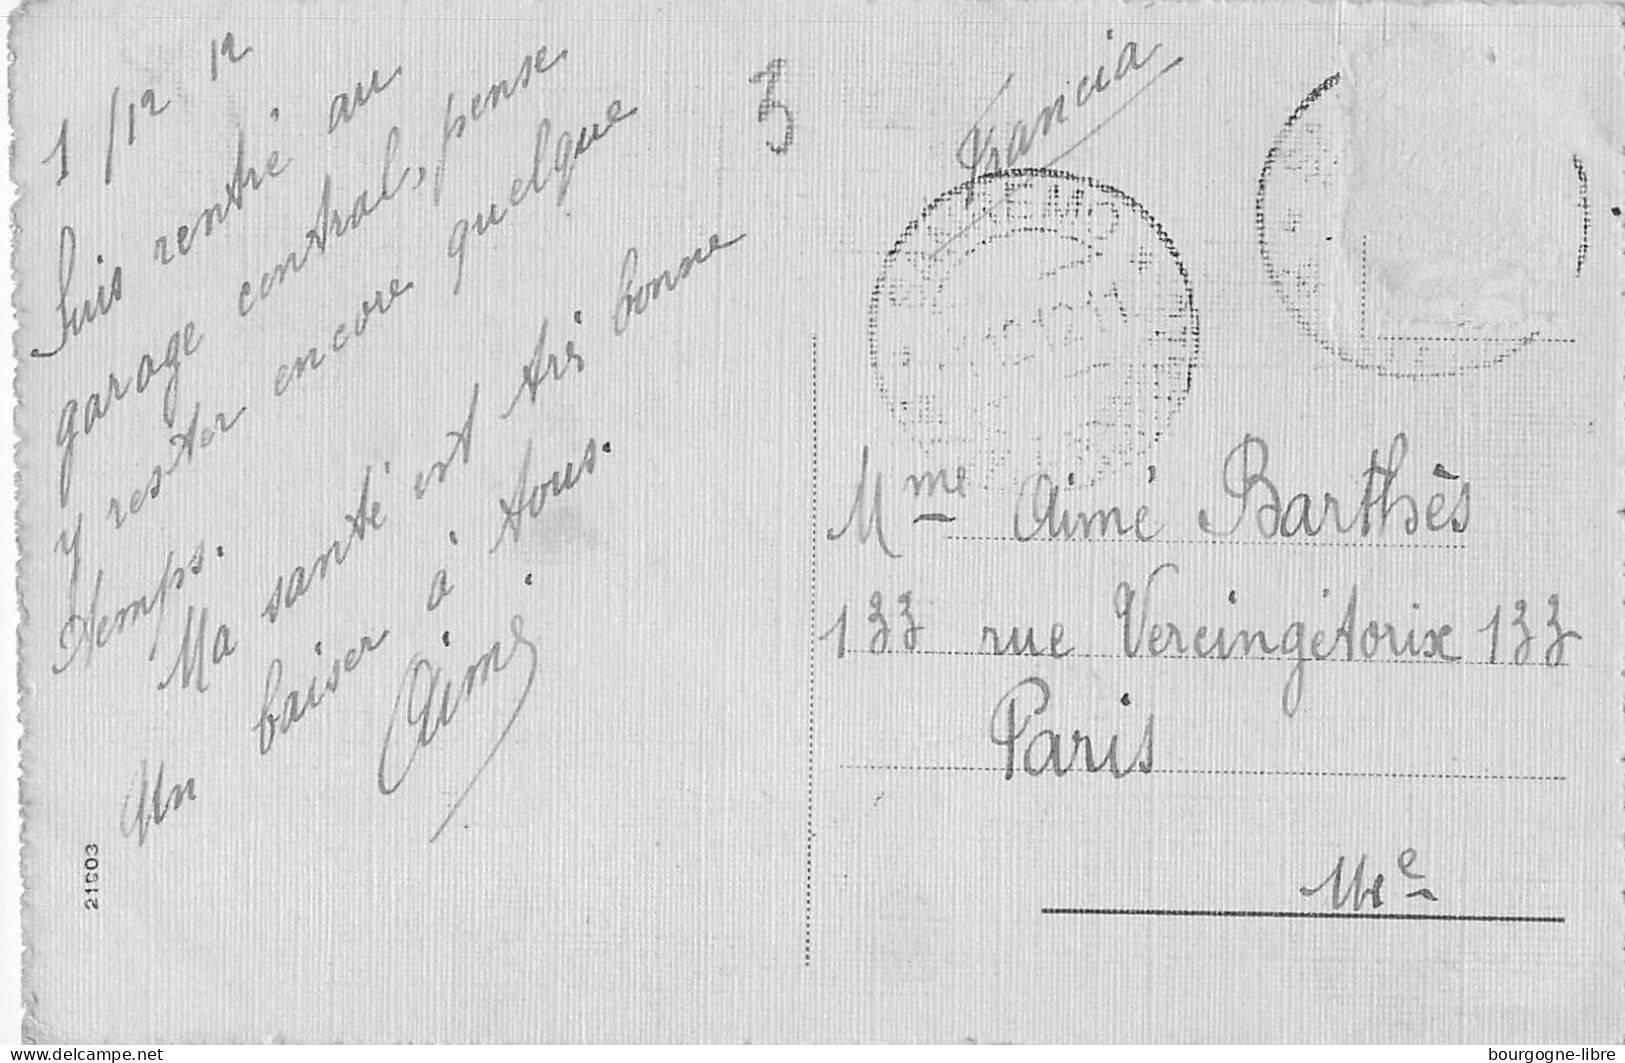 1/12 12
Suis rentré au
garage central, pense
y rester encore quelque
temps.
Ma santé est très bonne
Un baiser à tous.
Aimé
21903
3
Francia
REMO
Mme Aimé Barthès
133 rue Vercingétorix 133
Paris
XIVe
delcampe.net
bourgogne-libre